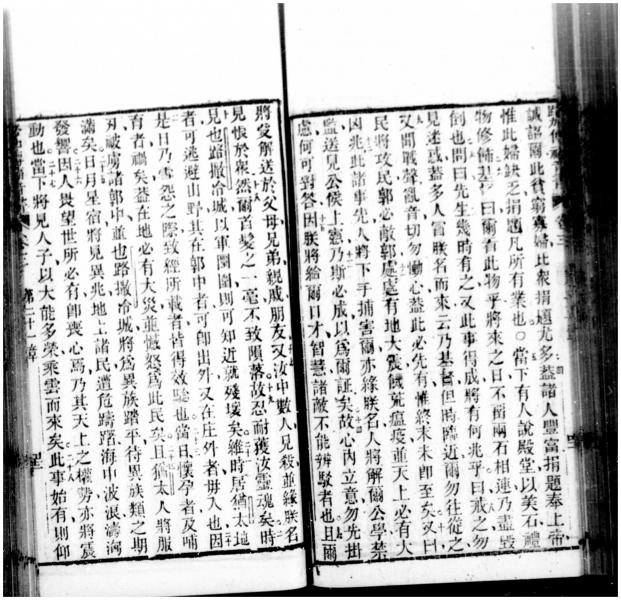 誠語爾此貧窮寡婦比衆捐題尤多蓋諸人豐富捐題奉上帝
惟此婦缺乏捐題凡所有業也○當下有人說殿堂以美石禮
物修飾 曰爾看此物乎將來之日不留兩石相連乃盡毀
也問曰先生幾時有之又此事得成將有何兆乎曰戒之勿
見迷惑蓋多人冒朕名而來云乃基督但時臨近爾勿往從之
又聞戰聲亂音切勿慟心蓋此必先有惟終末未即至矣又曰
民將攻民郭必敵郭處處有地大震饑荒瘟疫並天上必有大
凶兆此諸事先人將下手捕害爾亦緣朕名人將解爾公學禁
監送見公侯上憲乃斯必成以爲爾証矣故心內立意勿先掛
慮何可對答因朕將給爾口才智慧諸敵不能辨駁者也且爾
將受解送於父母兄弟親戚朋友又汝中數人見殺並緣朕名
見恨於衆然爾首髮之一毫不致隕落故忍耐獲汝靈魂矣時
見也路撒冶城以軍圍圍則可知近就殘壞矣維時居猶太地
者可逃避山野其在郭中者可即出外又在庄外者毋入也因
是日乃雪怨之際致經所載者皆得效驗也當日懷孕者及哺
育者禍矣蓋在地必有大災並慍怒爲此民矣且猶太人將服
刃被虜諸郭中並也路撒冶城將爲異族踏平待異族類之期
滿矣日月星宿將見異兆地上諸民遭危躊躇海中波浪濤洶
發響因人畏望世所必有即喪心焉乃其天上之權勢亦將震
動也當下將見人子以大能多榮乘雲而來矣此事始有則仰
第二十一章